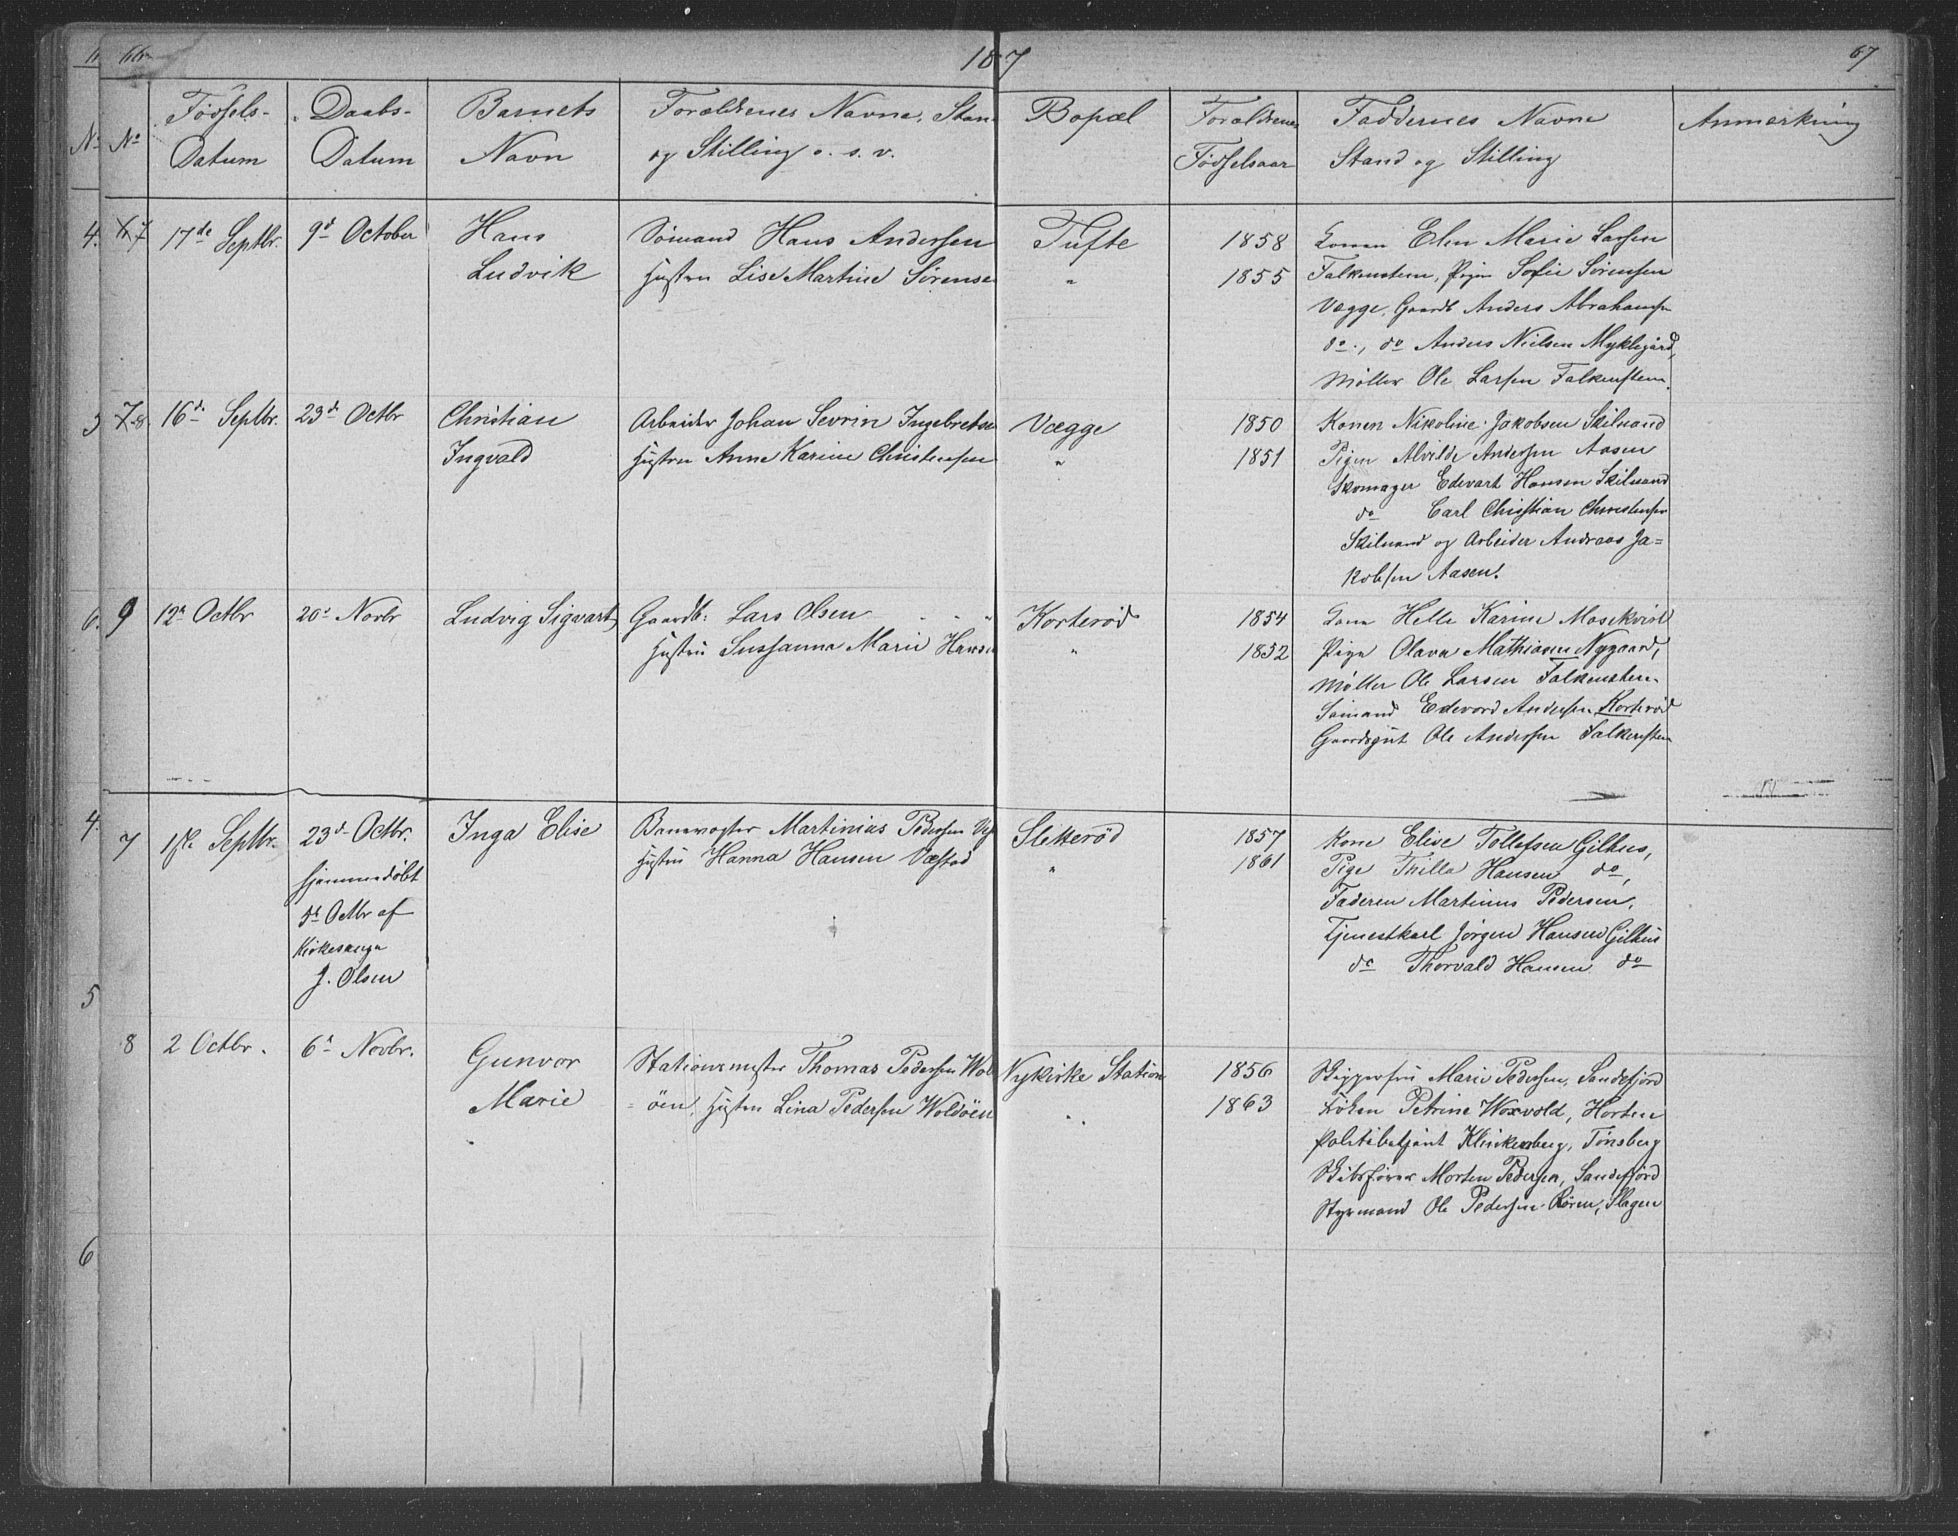 66
187
67
No
Fødsels-Datum
Daabs-Datum
Barnets Navn
Forældrenes Navne, Stan
og Stilling o. s. v.
Bopæl
Forældrenes Fødselsaar
Faddernes Navne
Stand og Stilling
Anmærkning
7
17de Septbr.
9d October
Hans
Ludvik
Sømand Hans Andersen
Hustru Lise Martine Sørense
Tufte
"
1858
1855
Konen Elen Marie Larsen
Falkensten, Pigen Sofie Sørensen
Vægge, Gaardb Anders Abrahamsen
do., do Anders Nielsen Myklegård,
Møller Ole Larsen Falkensten.
8
16d Septbr.
23d Octbr
Christian
Ingvald
Arbeider Johan Sevrin Ingebretse
Hustru Anne Karine Christensen
Vægge
"
1850
1851
Konen Nikoline Jakobsen Skilsand
Pigen Alvilde Andersen Aasen
Skomager Edevart Hansen Skilsand
do Carl Christian Christensen
Skilsand og Arbeider Andreas Ja=
kobsen Aasen.
9
12te Octbr
20d Novbr
Ludvig Sigvart
Gaardb: Lars Olsen
Hustru Sussanna Marie Hanse
Korterød
"
1854
1852
Kone Helle Karine Mosekvist
Pige Olava Mathiasen Nygaard,
Møller Ole Larsen Falkensten
Sømand Edevard Andersen Korterød
Gaardsgut Ole Andersen Falkensten
7
1ste Septbr.
23d Octbr.
hjemmedøbt
Octbr af
Kirkesanger
J. Olsen
Inga Elise
Banevogter Martinias Pedersen
Hustru Hanna Hansen
Sletterød
"
1857
1861
Kone Elise Tollefsen Gilhus,
Pige Thilla Hansen do,
Faderen Martinus Pedersen,
Tjenestkarl Jørgen Hansen Gilhus
do Thorvald Hansen do
8
2 Octbr.
6d Novbr.
Gunvor
Marie
Stationsmester Thomas Pedersen Wold
øen, Hustru Lina Pedersen Woldöen
Nykirke Station
"
1856
1863
Skipperfru Marie Pedersen, Sandefjord
Frøken Petrine Woxvold, Horten
Politibetjent Klinkenberg, Tønsberg
Skibsfører Morten Pedersen, Sandefjord
Styrmand Ole Pedersen Røren, Slagen
4.
3
6.
4.
5
6